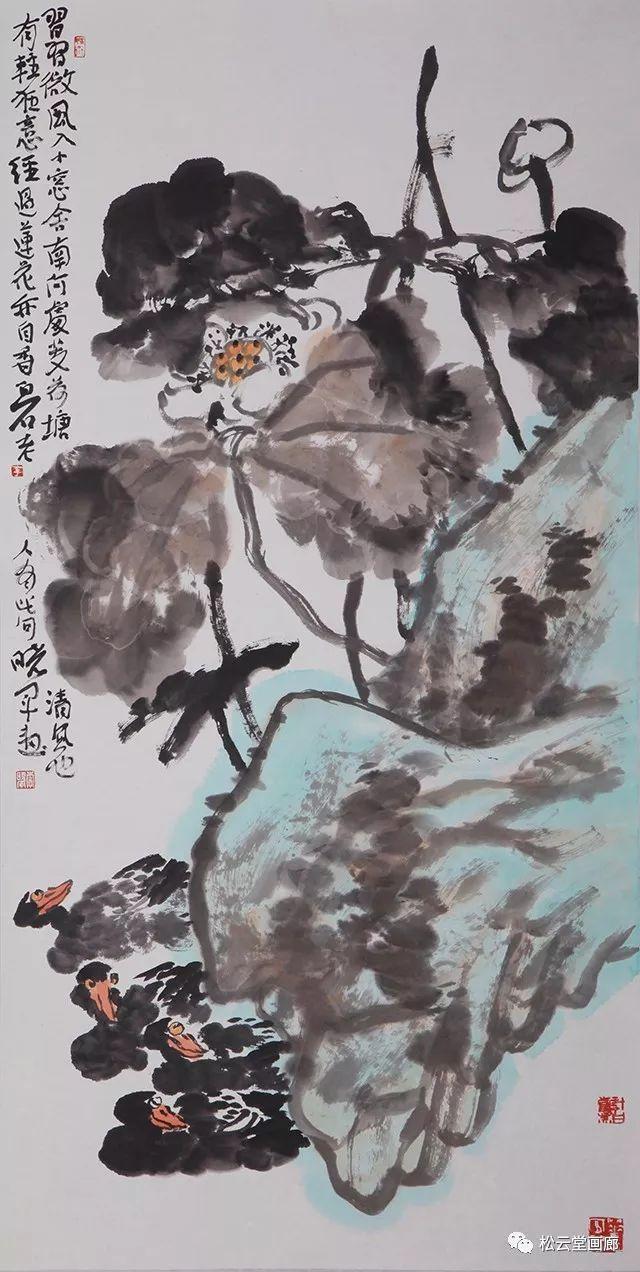 習習微風入小窓舍南何處芰荷塘清風也
有輕狂意經過蓮花亦自香白石老人有此句曉軍
松云堂画廊